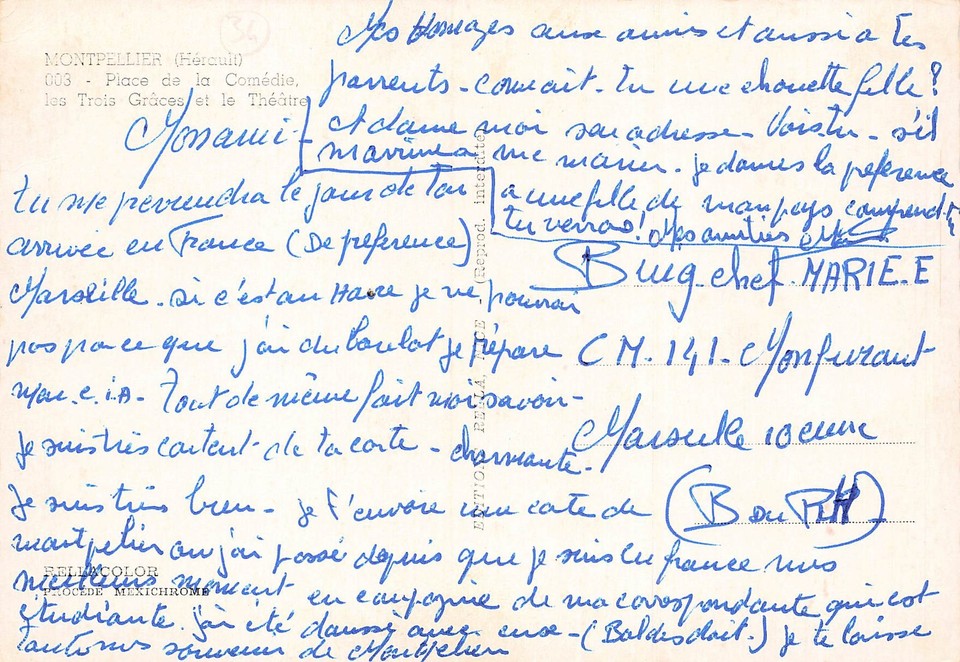 MONTPELLIER (Hérault)
003 - Place de la Comédie,
les Trois Grâces et le Théâtre
34
Mon ami -
tu me prevendra le jour de ton
arrivée en France (De preference)
Marseille. si c'est au Havre je ne pourrai
pas parce que j'ai du boulot je prépare
mon. C.i.A - Tout de même fait moi savoir -
Je suis très content - de ta carte - charmante.
Je suis très bien - je t'envoie une carte de
montpelier ou j'ai passé depuis que je suis en france mes
meilleurs moment en compagnie de ma correspondante qui est
étudiante. j'ai été danssé avec eux - (Bal des doit.) je te laisse
souvenir de Montpelier
Mes Homages aux amis et aussi a tes
parrents - connait - tu une chouette fille ?
et donne moi son adresse - Vois tu - s'il
me marier. je donnes la preference
a une fille de mon pays comprend tu
tu verras ! Mes amitiés
chef. MARIE. E
C M. 141 -
Marseille 10eme
EDITIONS RELLA, NICE - (Reprod. interdite)
RELLACOLOR
PROCÉDÉ MEXICHROME